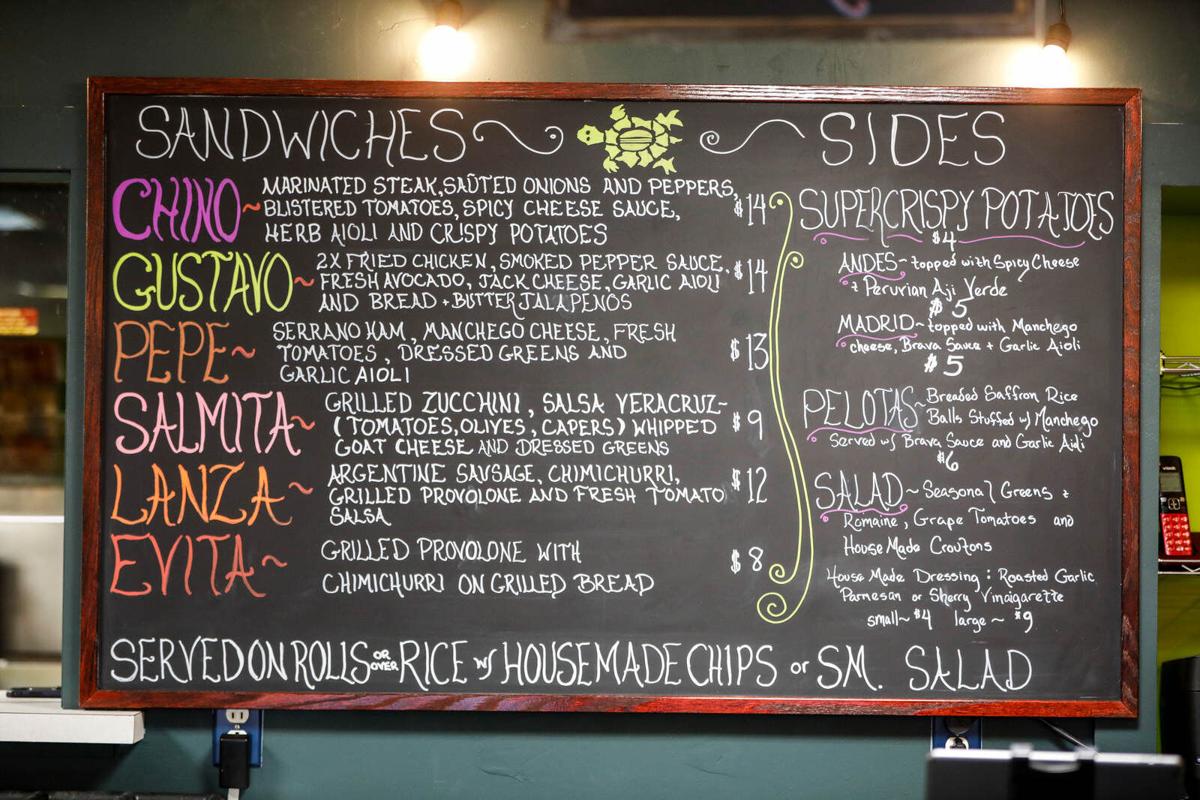 SANDWICHES
CHINO~ MARINATED STEAK, SAŪTED ONIONS AND PEPPERS,
BLISTERED TOMATOES, SPICY CHEESE SAUCE, $14
HERB AIOLI AND CRISPY POTATOES
GUSTAVO~ 2X FRIED CHICKEN, SMOKED PEPPER SAUCE,
FRESH AVOCADO, JACK CHEESE, GARLIC AIOLI $14
AND BREAD + BUTTER JALAPENOS
PEPE~ SERRANO HAM, MANCHEGO CHEESE, FRESH
TOMATOES, DRESSED GREENS AND $13
GARLIC AIOLI
SALMITA~ GRILLED ZUCCHINI, SALSA VERACRUZ~
(TOMATOES, OLIVES, CAPERS) WHIPPED $9
GOAT CHEESE AND DRESSED GREENS
LANZA~ ARGENTINE SAUSAGE, CHIMICHURRI,
GRILLED PROVOLONE AND FRESH TOMATO $12
SALSA
EVITA~ GRILLED PROVOLONE WITH $8
CHIMICHURRI ON GRILLED BREAD
SIDES
SUPERCRISPY POTATOES
$4
ANDES~ topped with Spicy Cheese
+ Peruvian Aji Verde
$5
MADRID~ topped with Manchego
cheese, Brava Sauce + Garlic Aioli
$5
PELOTAS~ Breaded Saffron Rice
Balls Stuffed w/ Manchego
Served w/ Brava Sauce and Garlic Aioli
$6
SALAD~ Seasonal Greens +
Romaine, Grape Tomatoes and
House Made Croutons
House Made Dressing: Roasted Garlic
Parmesan or Sherry Vinaigarette
small~ $4 large~ $9
SERVED ON ROLLS OR OVER RICE w/ HOUSEMADE CHIPS or SM. SALAD